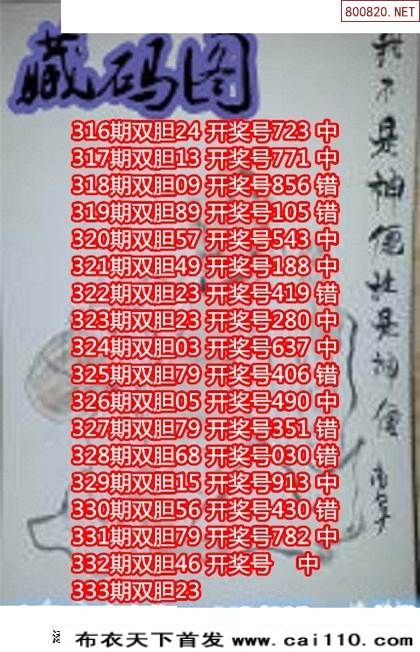 800820.NET
藏码图
316期双胆24 开奖号723 中
317期双胆13 开奖号771 中
318期双胆09 开奖号856 错
319期双胆89 开奖号105 错
320期双胆57 开奖号543 中
321期双胆49 开奖号188 中
322期双胆23 开奖号419 错
323期双胆23 开奖号280 中
324期双胆03 开奖号637 中
325期双胆79 开奖号406 错
326期双胆05 开奖号490 中
327期双胆79 开奖号351 错
328期双胆68 开奖号030 错
329期双胆15 开奖号913 中
330期双胆56 开奖号430 错
331期双胆79 开奖号782 中
332期双胆46 开奖号 中
333期双胆23
我不是神仙
布衣天下首发 www.cai110.com